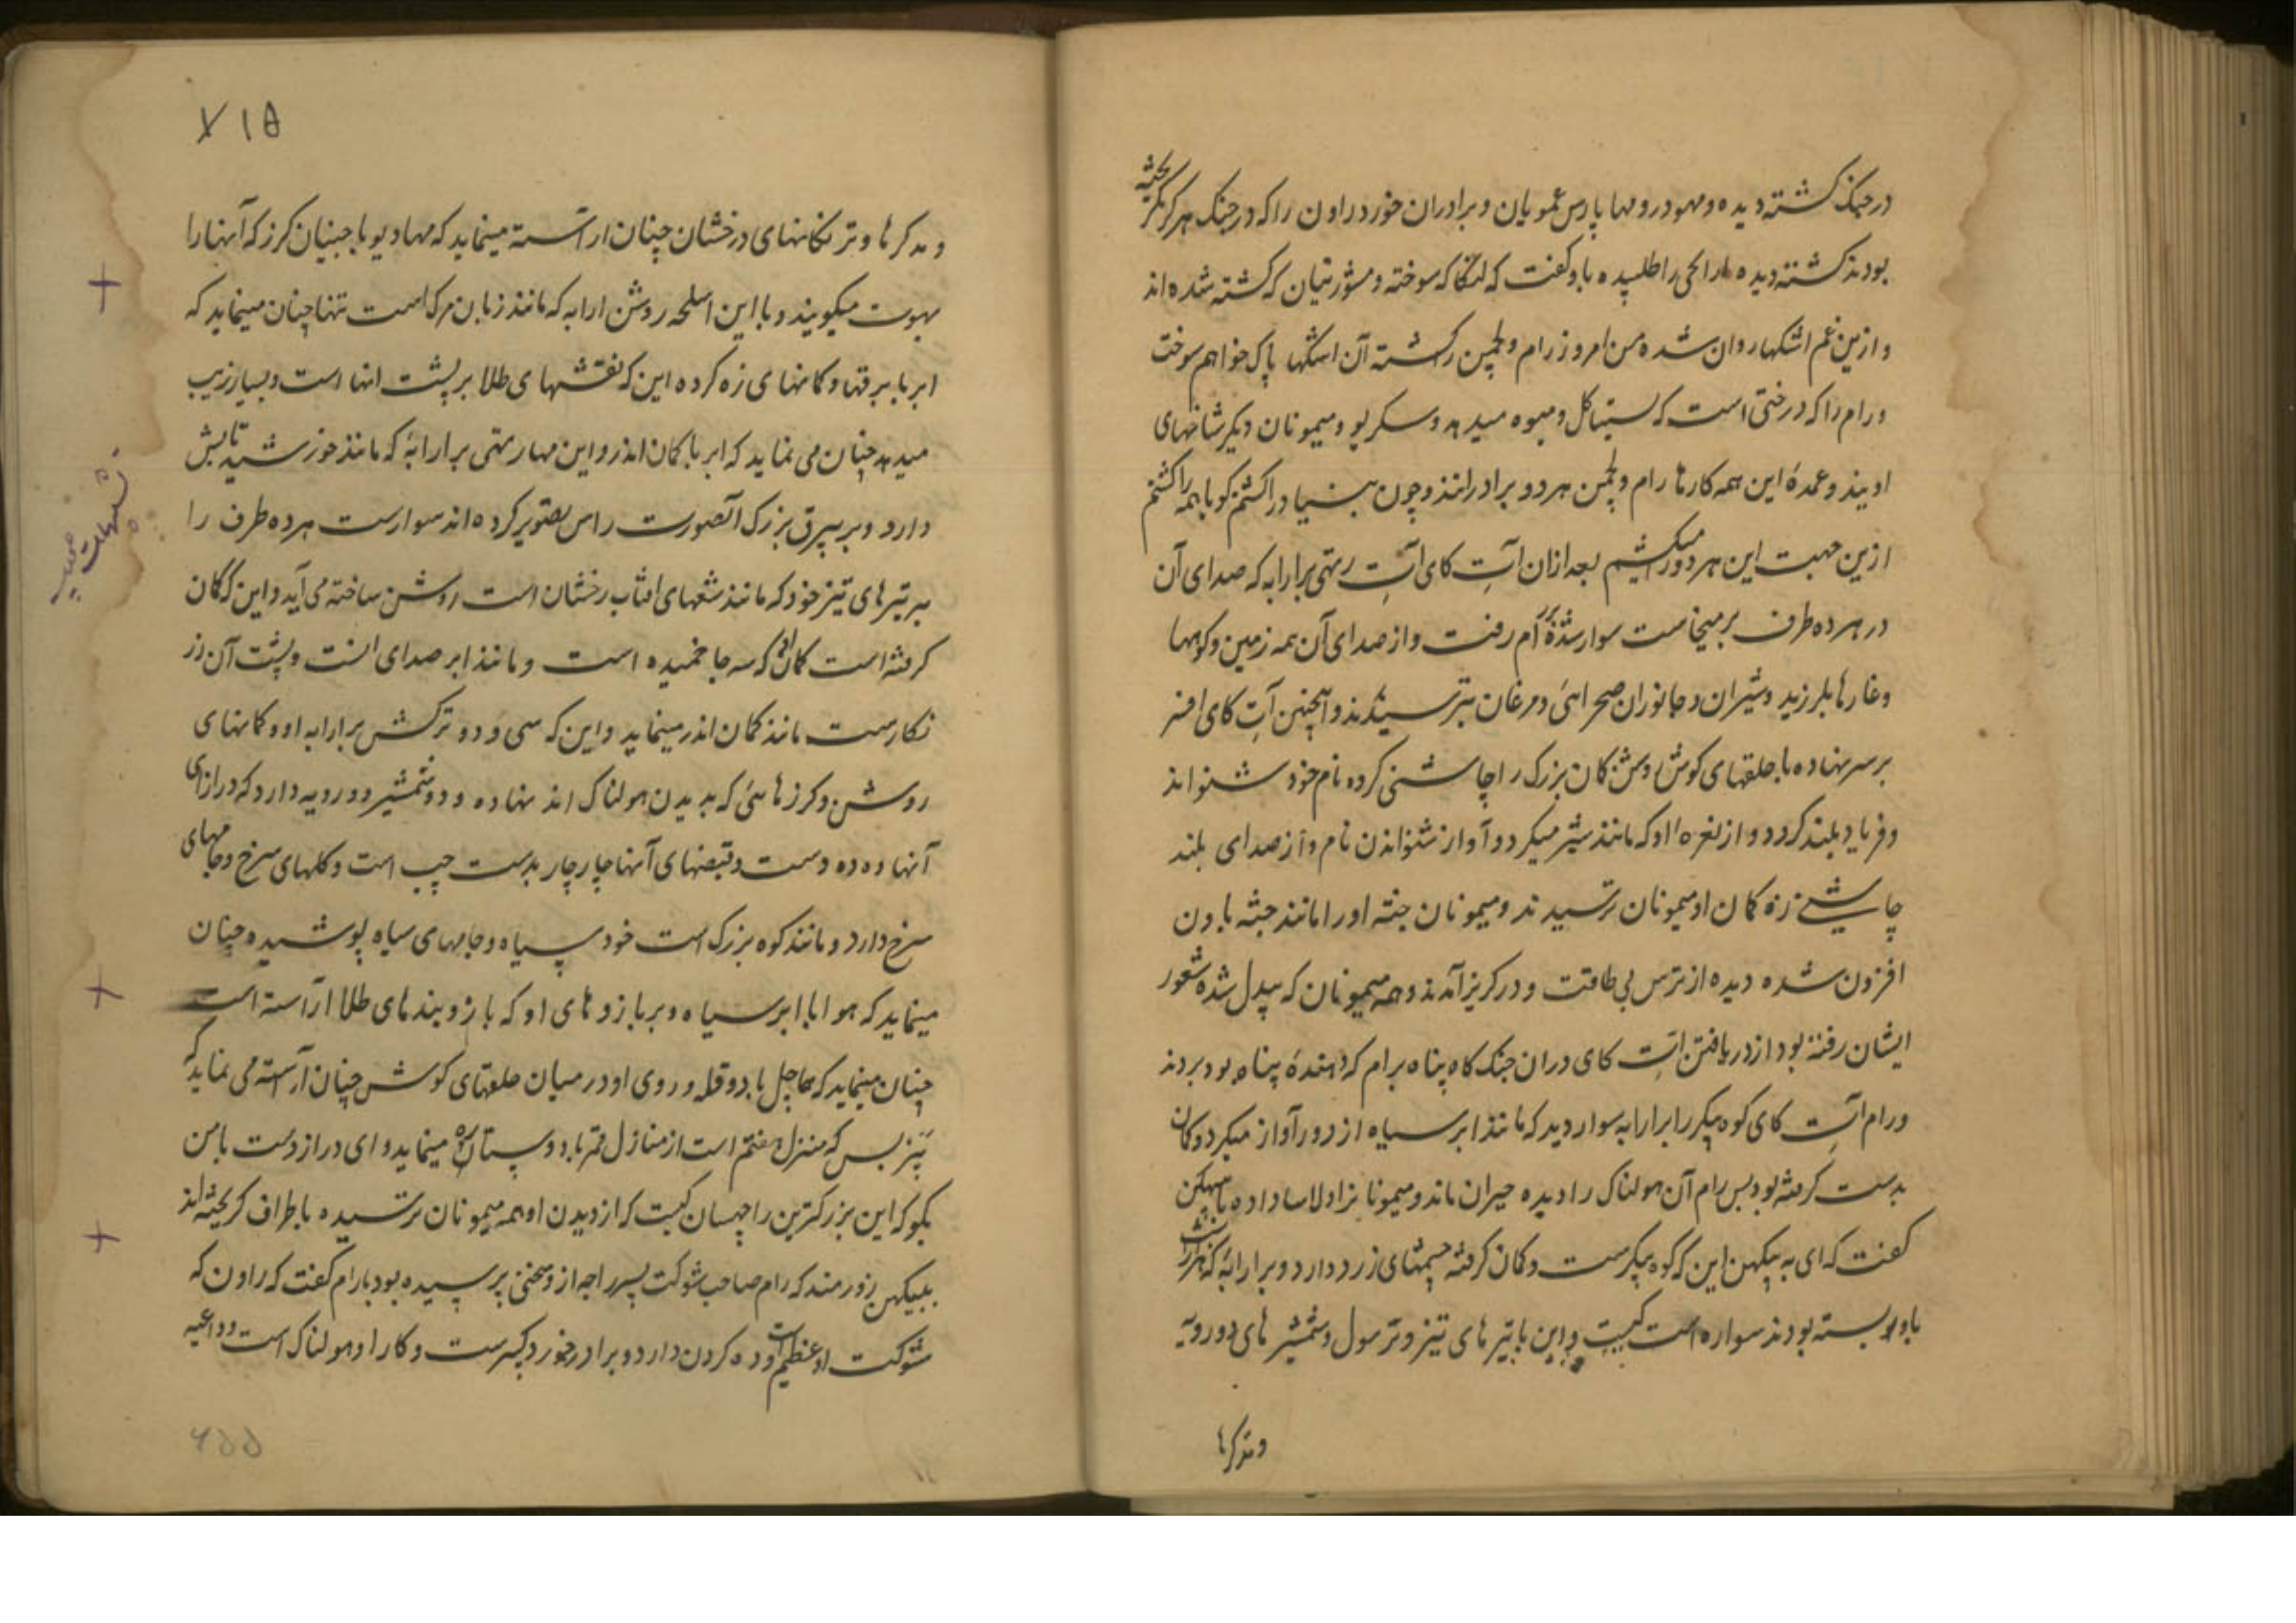 در جنک کشته دیده و مهودر و مها پارس عمویان و برادران خورد راون را که در جنک هرکز نکریخته
بودند کشته دیده ارابچی را طلبیده باو کفت که لنکا که سوخته و مشورتیان که کشته شده اند
و ازین غم اشکها روان شده من امروز رام و لچمن را کشته آن اشکها پاک خواهم سوخت
و رام را که درختی است که سیتا کل و میوه میدهد و سکریو و میمونان دیکر شاخهای
اویند و عمدهٔ این همه کارها رام و لچمن هر دو برادرانند و چون بنیاد را کشتم کویا همه را کشتم
ازین جهت این هر دو را میکشیم بعد ازان اَتِ کای اَتِ رتهی بر ارابه که صدای آن
در هر ده طرف برمیخاست سوار شده نزد رام رفت و از صدای آن همه زمین و کوهها
و غارها بلرزید و شیران و جانوران صحرائی و مرغان بترسیدند و همچنین اَتِ کای افسر
بر سر نهاده با حلقهای کوش و شش کمان بزرک را چاشنی کرده نام خود شنواند
و فریاد بلند کرد و از نعره او که مانند شیر میکرد و آواز شنواندن نام و از صدای بلند
چاشنی زه کمان او میمونان ترسیدند و میمونان جثه او را مانند جثه باون
افزون شده دیده از ترس بی طاقت و در کریز آمدند و همه میمونان که بیدل شده شعور
ایشان رفته بود از دریافتن اَتِ کای دران جنک کاه پناه برام که دهندهٔ پناه بود بردند
و رام اَتِ کای کوه پیکر را بر ارابه سوار دید که مانند ابر سیاه از دور آواز میکرد و کمان
بدست کرفته بود پس رام آن هولناک را دیده حیران ماند و میمونا نرا دلاسا داده با ببهیکن
کفت که ای ببهیکهن این که کوه پیکرست و کمان کرفته چشمهای زرد دارد و بر ارابهٔ که هزار اسب
باو بسته بودند سواره است کیست و این با تیرهای تیز و ترسول و شمشیرهای دو رویه
و مدکرها
۷۱۵
و مدکرها و ترنکانهای درخشان چنان آراسته مینماید که مهادیو با جنیان کرز که آنها را
بهوت میکویند و با این اسلحه روشن ارابه که مانند زبان مرک است تنها چنان مینماید که
ابر با برقها و کمانهای زه کرده این که نقشهای طلا بر پشت انها است و بسیار زیب
میدهد چنان می نماید که ابر با کمان اندر و این مهارتهی بر ارابهٔ که مانند خورشید تابش
دارد و بر بیرق بزرک آن صورت راس تصویر کرده اند سوارست هر ده طرف را
بر تیرهای تیز خود که مانند شعهای افتاب رخشان است روشن ساخته می آید و این که کمان
کرفته است کمان او که سه جا خمیده است و مانند ابر صدای اوست و پشت آن زر
نکارست مانند کمان اندر مینماید و این که سی و دو ترکش بر ارابه او و کمانهای
روشن و کرزهائی که بدیدن هولناک اند نهاده و دو شمشیر دو رویه دارد که درازای
آنها ده ده دست و قبضهای آنها چار چار بدست چپ است و کلهای سرخ و جامهای
سرخ دارد و مانند کوه بزرک است خود سیاه و جامهای سیاه پوشیده چنان
مینماید که هوا با ابر سیاه و بر بازوهای او که بازوبندهای طلا آراسته است
چنان مینماید که هماچل با دو قله و روی او در میان حلقهای کوش چنان آراسته می نماید که
پنربس که منزل هفتم است از منازل قمر با دو ستاره مینماید و ای دراز دست بامن
بکو که این بزرکترین راچهسان کیست که از دیدن او همه میمونان ترسیده باطراف کریخته اند
ببهیکهن زورمند که رام صاحب شوکت پسر راجه ازو سخنی پرسیده بود با رام کفت که راون که
شوکت او عظیم است و ده کردن دارد و برادر خورد کبیرست و کار او هولناک است و داعیه
تشبیهات عجیبه
۶۵۵